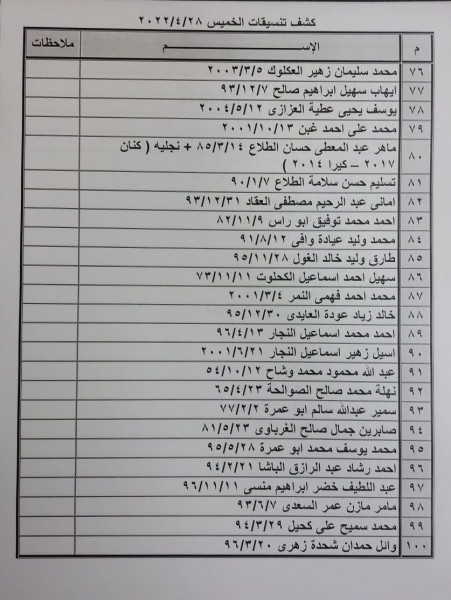 كشف تنسيقات الخميس ٢٠٢٢/٤/٢٨
م الإســــم ملاحظات
٧٦ محمد سليمان زهير العكلوك ٢٠٠٣/٣/٥
٧٧ ايهاب سهيل ابراهيم صالح ٩٣/١٢/٧
٧٨ يوسف يحيى عطية العزازى ٢٠٠٤/٥/١٢
٧٩ محمد على احمد غبن ٢٠٠١/١٠/١٣
٨٠ ماهر عبد المعطى حسان الطلاع ٨٥/٣/١٤ + نجليه ( كنان
٢٠١٧ – كيرا ٢٠١٤ )
٨١ تسليم حسن سلامة الطلاع ٩٠/١/٧
٨٢ امانى عبد الرحيم مصطفى العقاد ٩٣/١٢/٣١
٨٣ احمد محمد توفيق ابو راس ٨٢/١١/٩
٨٤ محمد وليد عيادة وافى ٩١/٨/١٢
٨٥ طارق وليد خالد الغول ٩٥/١١/٢٨
٨٦ سهيل احمد اسماعيل الكحلوت ٧٣/١١/١١
٨٧ محمد احمد فهمى النمر ٢٠٠١/٣/٤
٨٨ خالد زياد عودة العايدى ٩٥/١٢/٣٠
٨٩ احمد محمد اسماعيل النجار ٩٦/٤/١٣
٩٠ اسيل زهير اسماعيل النجار ٢٠٠١/٦/٢١
٩١ عبد الله محمود محمد وشاح ٥٤/١٠/١٢
٩٢ نهلة محمد صالح الصوالحة ٦٥/٤/٢٣
٩٣ سمير عبدالله سالم ابو عمرة ٧٧/٢/٢
٩٤ صابرين جمال صالح الغرباوى ٨١/٥/٢٣
٩٥ محمد يوسف محمد ابو عمرة ٩٥/٥/٢٨
٩٦ احمد رشاد عبد الرازق الباشا ٩٤/٢/٢١
٩٧ عبد اللطيف خضر ابراهيم منسى ٩٦/١١/١١
٩٨ مامر مازن عمر السعدى ٩٣/٦/٧
٩٩ محمد سميح على كحيل ٩٤/٣/٢٩
١٠٠ وائل حمدان شحدة زهرى ٩٦/٣/٢٠